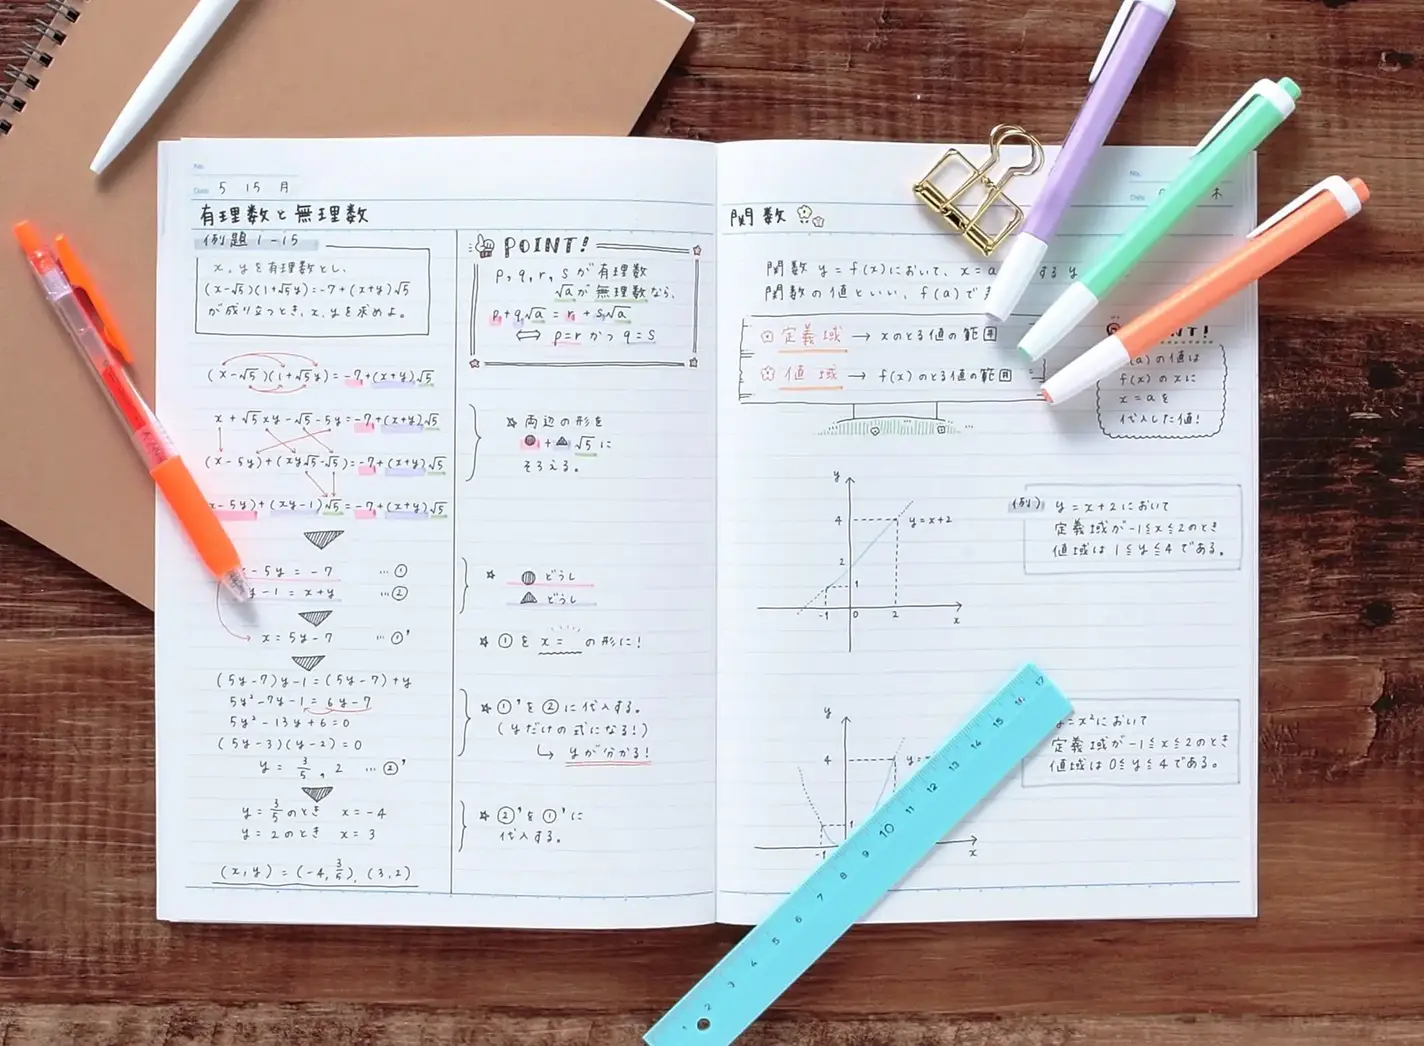 No.
Date 5 15 月
有理数と無理数
例題 1-15
x, yを有理数とし、
(x-√5)(1+√5y)=-7+(x+y)√5
が成り立つとき、x, yを求めよ。
(x-√5)(1+√5y)=-7+(x+y)√5
x+√5xy-√5-5y=-7+(x+y)√5
(x-5y)+(xy√5-√5)=-7+(x+y)√5
x-5y)+(xy-1)√5=-7+(x+y)√5
-5y=-7 …①
y-1=x+y …②
x=5y-7 …①'
(5y-7)y-1=(5y-7)+y
5y²-7y-1=6y-7
5y²-13y+6=0
(5y-3)(y-2)=0
y=3/5, 2 …②'
y=3/5のとき x=-4
y=2のとき x=3
(x,y)=(-4,3/5),(3,2)
POINT!
p, q, r, sが有理数
√aが無理数なら、
p+q√a=r+s√a
⟺ p=rかつq=s
☆両辺の形を
●+▲√5に
そろえる。
☆ ●どうし
▲どうし
☆①をx=の形に!
☆①'を②に代入する。
(yだけの式になる!)
↳ yが分かる!
☆②'を①'に
代入する。
No.
Date 木
関数
関数y=f(x)において、x=a する y
関数の値といい、f(a)で
定義域 → xのとる値の範囲
値域 → f(x)のとる値の範囲
NT!
(a)の値は
f(x)のxに
x=aを
代入した値!
y
4
y=x+2
2
1
-1 0 2 x
例) y=x+2において
定義域が-1≦x≦2のとき
値域は1≦y≦4である。
y
4
y=
1
-1 x
y=x²において
定義域が-1≦x≦2のとき
値域は0≦y≦4である。
1 2 3 4 5 6 7 8 9 10 11 12 13 14 15 16 17